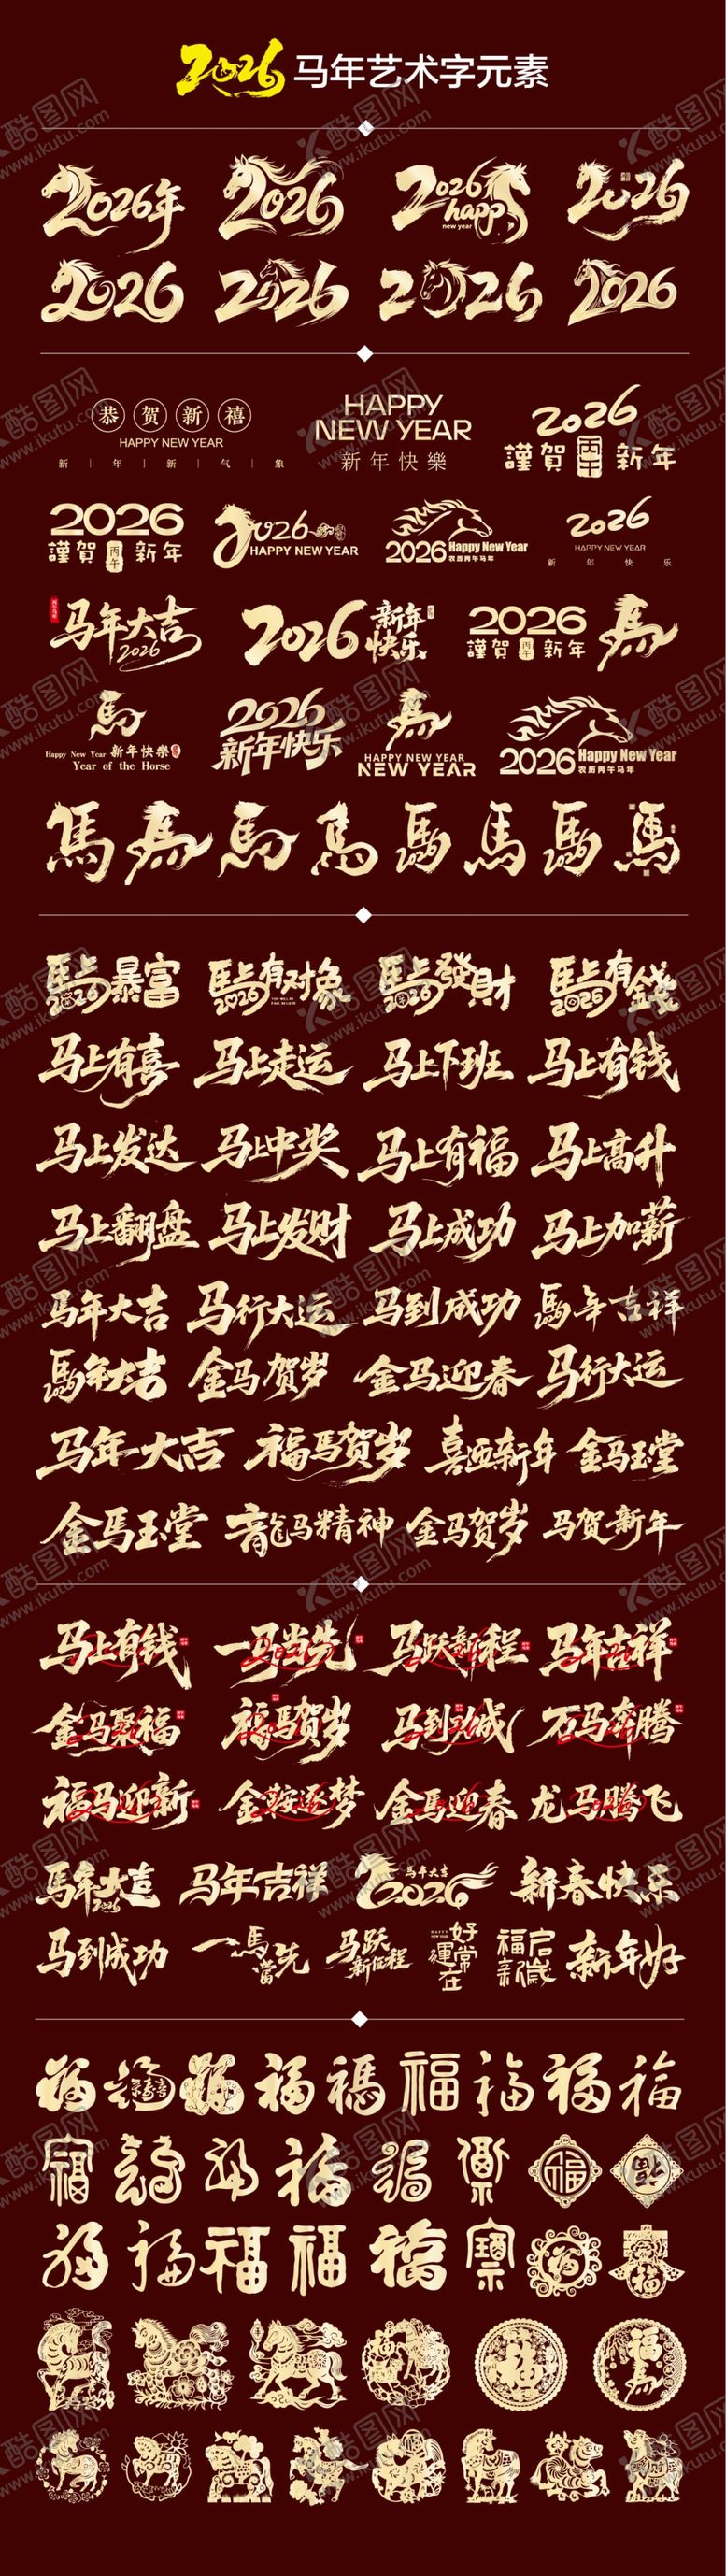 2026 马年艺术字元素
2026年 2026 2026 happy new year 2026
2026 2026 2026 2026
恭贺新禧
HAPPY NEW YEAR
新 | 年 | 新 | 气 | 象
HAPPY
NEW YEAR
新年快樂
2026
謹賀 丙午 新年
2026
謹賀 丙午 新年
2026
HAPPY NEW YEAR
2026 Happy New Year
农历丙午马年
2026
HAPPY NEW YEAR
新 年 快 乐
马年大吉
2026
2026 新年快乐
2026
謹賀 丙午 新年 馬
馬
Happy New Year 新年快樂
Year of the Horse
2026
新年快乐
馬
HAPPY NEW YEAR
NEW YEAR
2026 Happy New Year
农历丙午马年
馬 馬 馬 馬 馬 2026 馬 馬 2026 馬
馬上暴富 2026 馬上有对象 2026 馬上發財 2026 馬上有錢 2026
马上有喜 马上走运 马上下班 马上有钱
马上发达 马上中奖 马上有福 马上高升
马上翻盘 马上发财 马上成功 马上加薪
马年大吉 马行大运 马到成功 馬年吉祥
馬年大吉 2026 金马贺岁 金马迎春 马行大运
马年大吉 福马贺岁 喜迎新年 金马玉堂
金馬玉堂 龍马精神 金马贺岁 马贺新年
马上有钱 一马当先 马跃新程 马年吉祥
金马聚福 福馬贺岁 马到功成 万马奔腾
福马迎新 金鞍逐梦 金馬迎春 龙马腾飞
馬年大吉 2026 马年吉祥 马年大吉 2026 新春快乐
马到成功 一馬當先 马跃新征程 好運常在 福启新岁 新年好
福 福 福 福 福 福 福 福
福 福 福 福 福 福
福 福 福 福 福 福
福 福馬
酷图网
www.ikutu.com